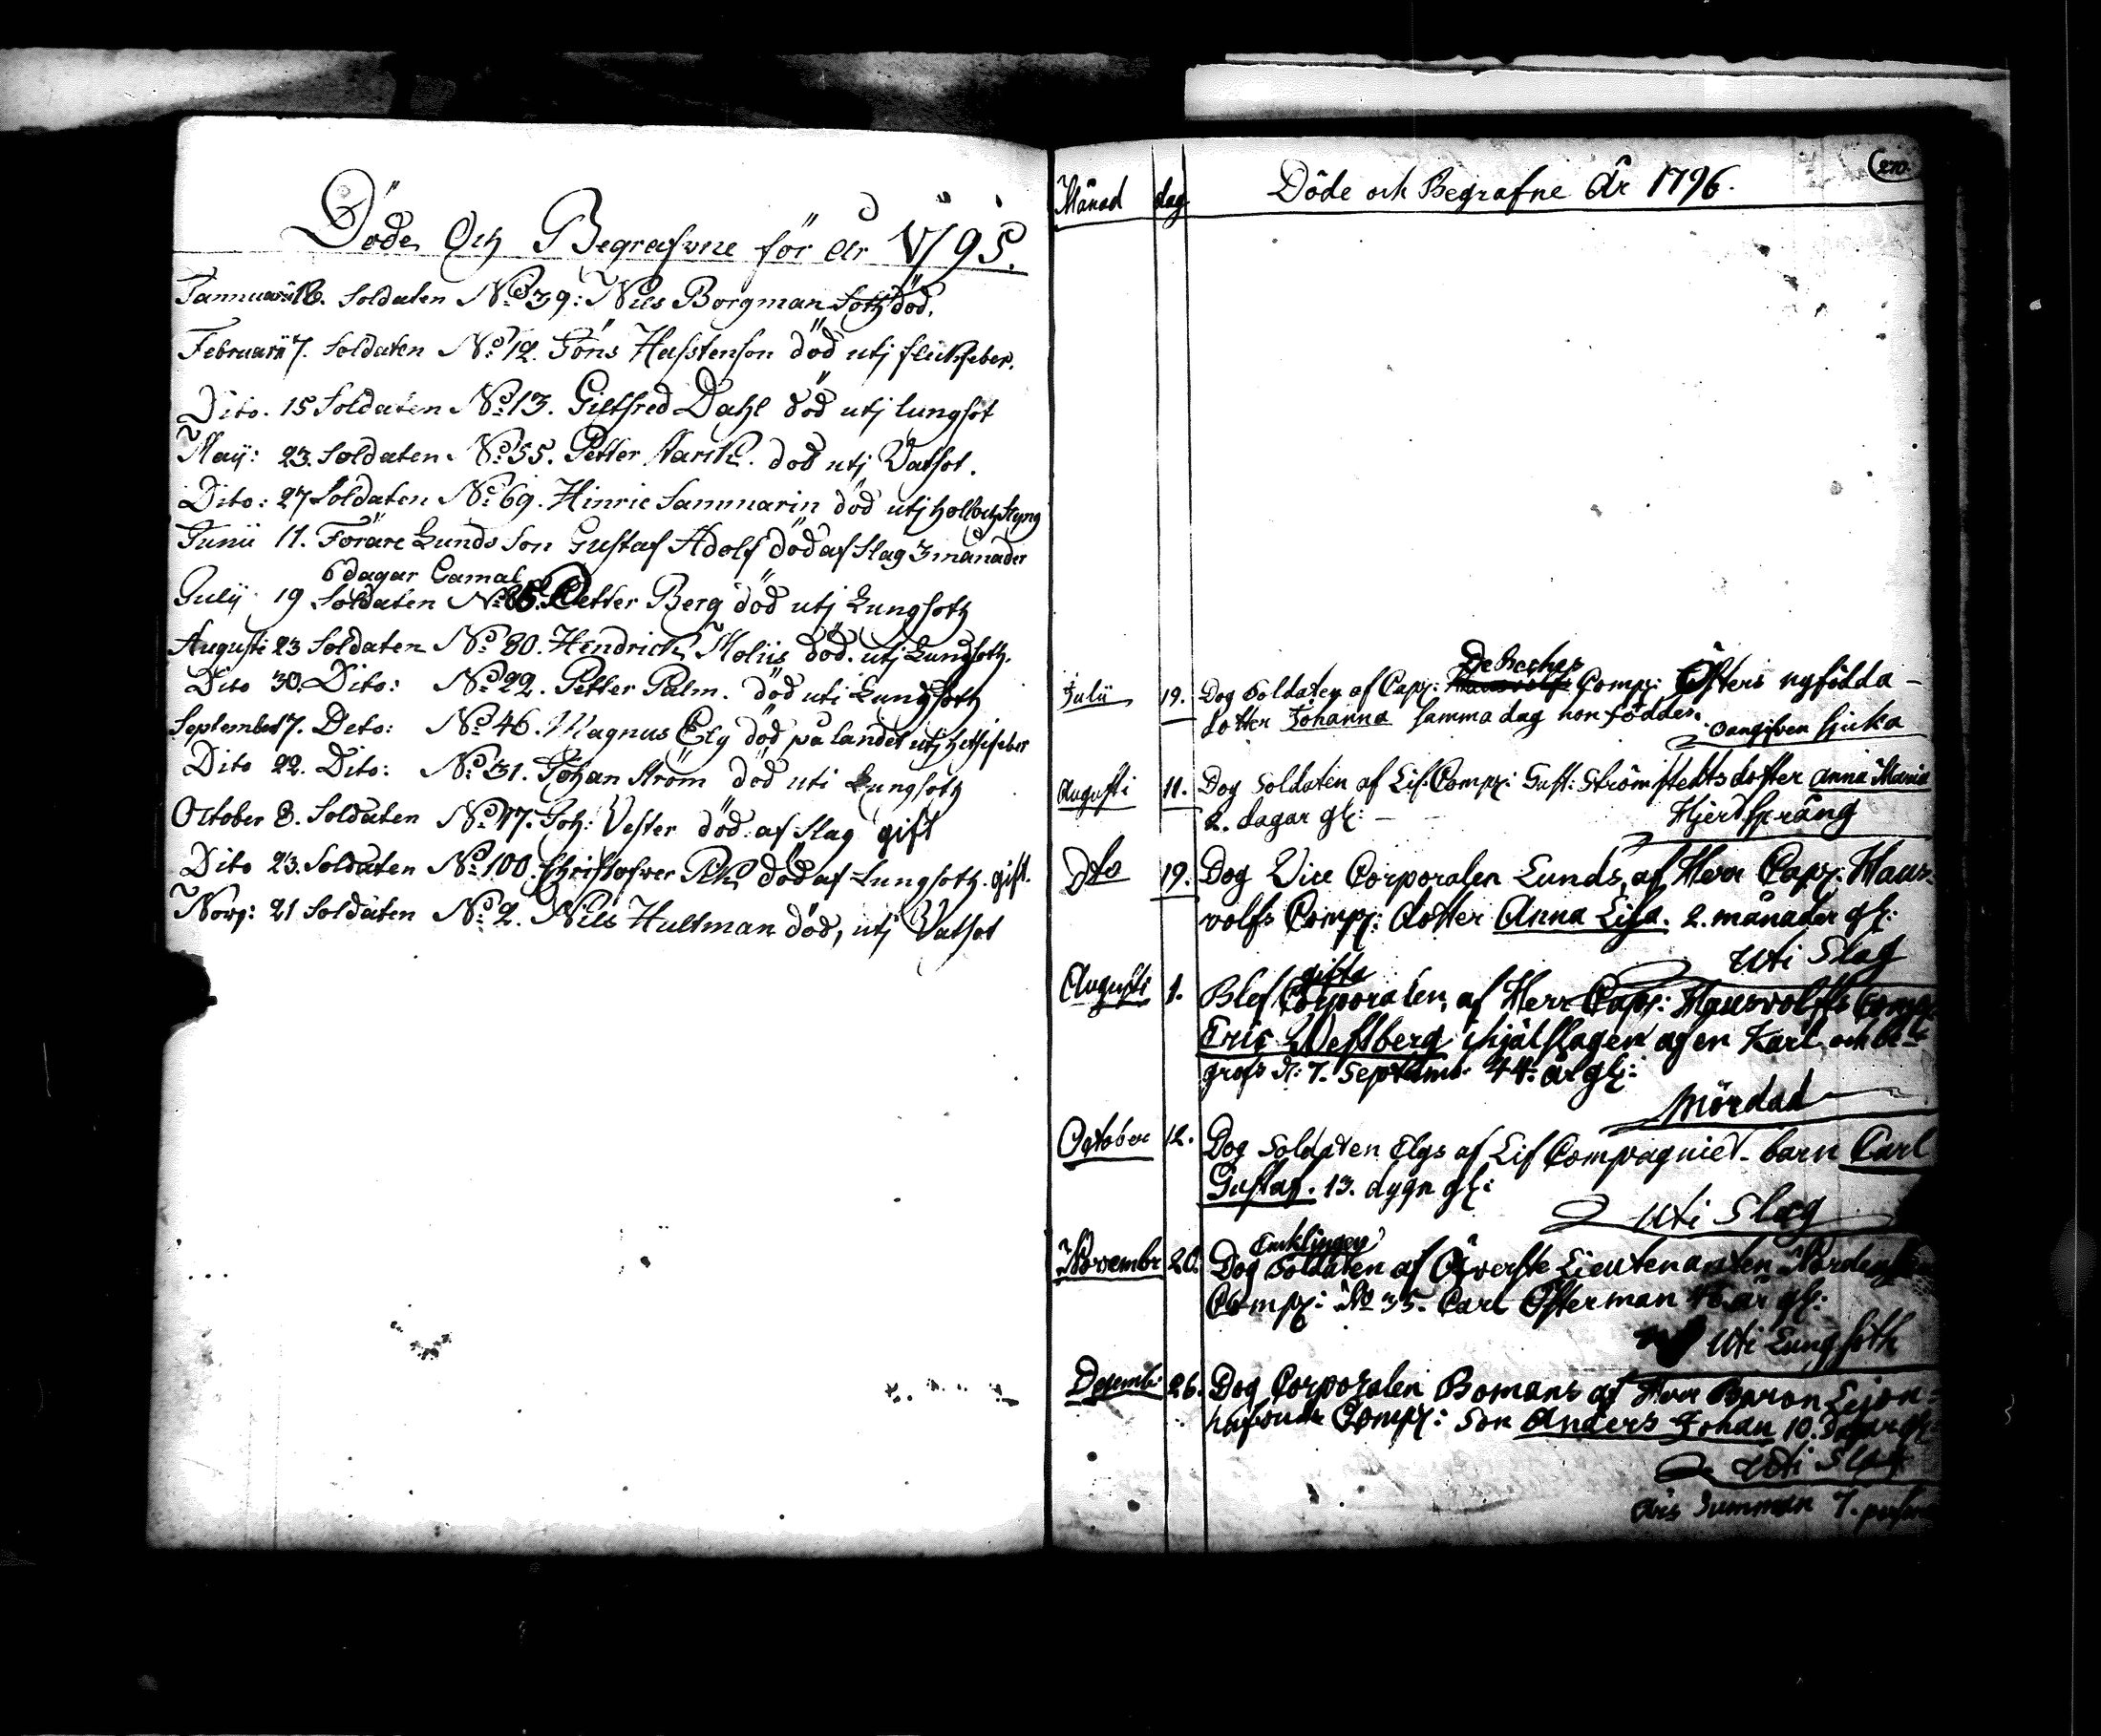 Döde Och Begrafvne för År 1795.
Januarii 16. Soldaten No 39: Nils Borgman Soth död.
Februarii 7. Soldaten No 12. Jöns Hasstenson död utj fleckfeber.
Dito. 15 Soldaten No 13. Giltfred Dahl död utj lungsot
Maij: 23. Soldaten No 55. Petter Stark. död utj Vatsot.
Dito: 27 Soldaten No 69. Hinric Sammarin död utj holl och styng
Junii 11. Förare Lunds Son Gustaf Adolf död af Slag 3 månader
6 dagar Gamal
Julij 19 Soldaten Petter Berg död utj Lungsoth
Augusti 23 Soldaten No 80. Hendrick Moliis död. utj Lungsoth.
Dito 30. Dito: No 22. Petter Palm. död uti Lungsoth
September 7. Deto: No 46. Magnus Elg död på landet utj hetsifeber
Dito 22. Dito: No 31. Johan Ström död uti Lungsoth
October 8. Soldaten No 17. Joh: Vester död: af Slag gift
Dito 23. Soldaten No 100. Christofver Pik död af Lungsoth. gift.
Novr: 21 Soldaten No 2. Nils Hultman död, utj Vatsot
Månad dag Döde och Begrafne År 1796. 270.
De Beches
Julii 19. Dog Soldaten af Cap: Comp: Östers nyfödda
dotter Johanna samma dag hon föddes.
Oangifven sjuka
Augusti 11. Dog Soldaten af Lif Comp: Gust: Strömstedts dotter Anna Maria
2. dagar gl:
Hjertsprång
Dto 19. Dog Vice Corporalen Lunds, af Herr Cap: Haus-
volfs Comp: dotter Anna Lisa. 2. månader gl:
Uti Slag
gifta
Augusti 1. Blef Corporalen, af Herr Cap: Hausvolffs Comp:
Eric Westberg ihjälslagen af en Karl och be-
grofs d: 7. Septemb: 44. år gl:
Mördad
October 12. Dog Soldaten Elgs af Lif Compagniet barn Carl
Gustaf. 13. dygn gl:
Uti Slag
Enklingen
November 20. Dog Soldaten af Öfverste Lieutenanten
Comp: No 35. Carl Österman 46. år gl:
Uti Lungsoth
Decemb: 26. Dog Corporalen Bomans af Herr Baron Lejon-
hufvuds Comp: Son Anders Johan 10. Dagar gl:
Uti Slag
Års Summan 7. person